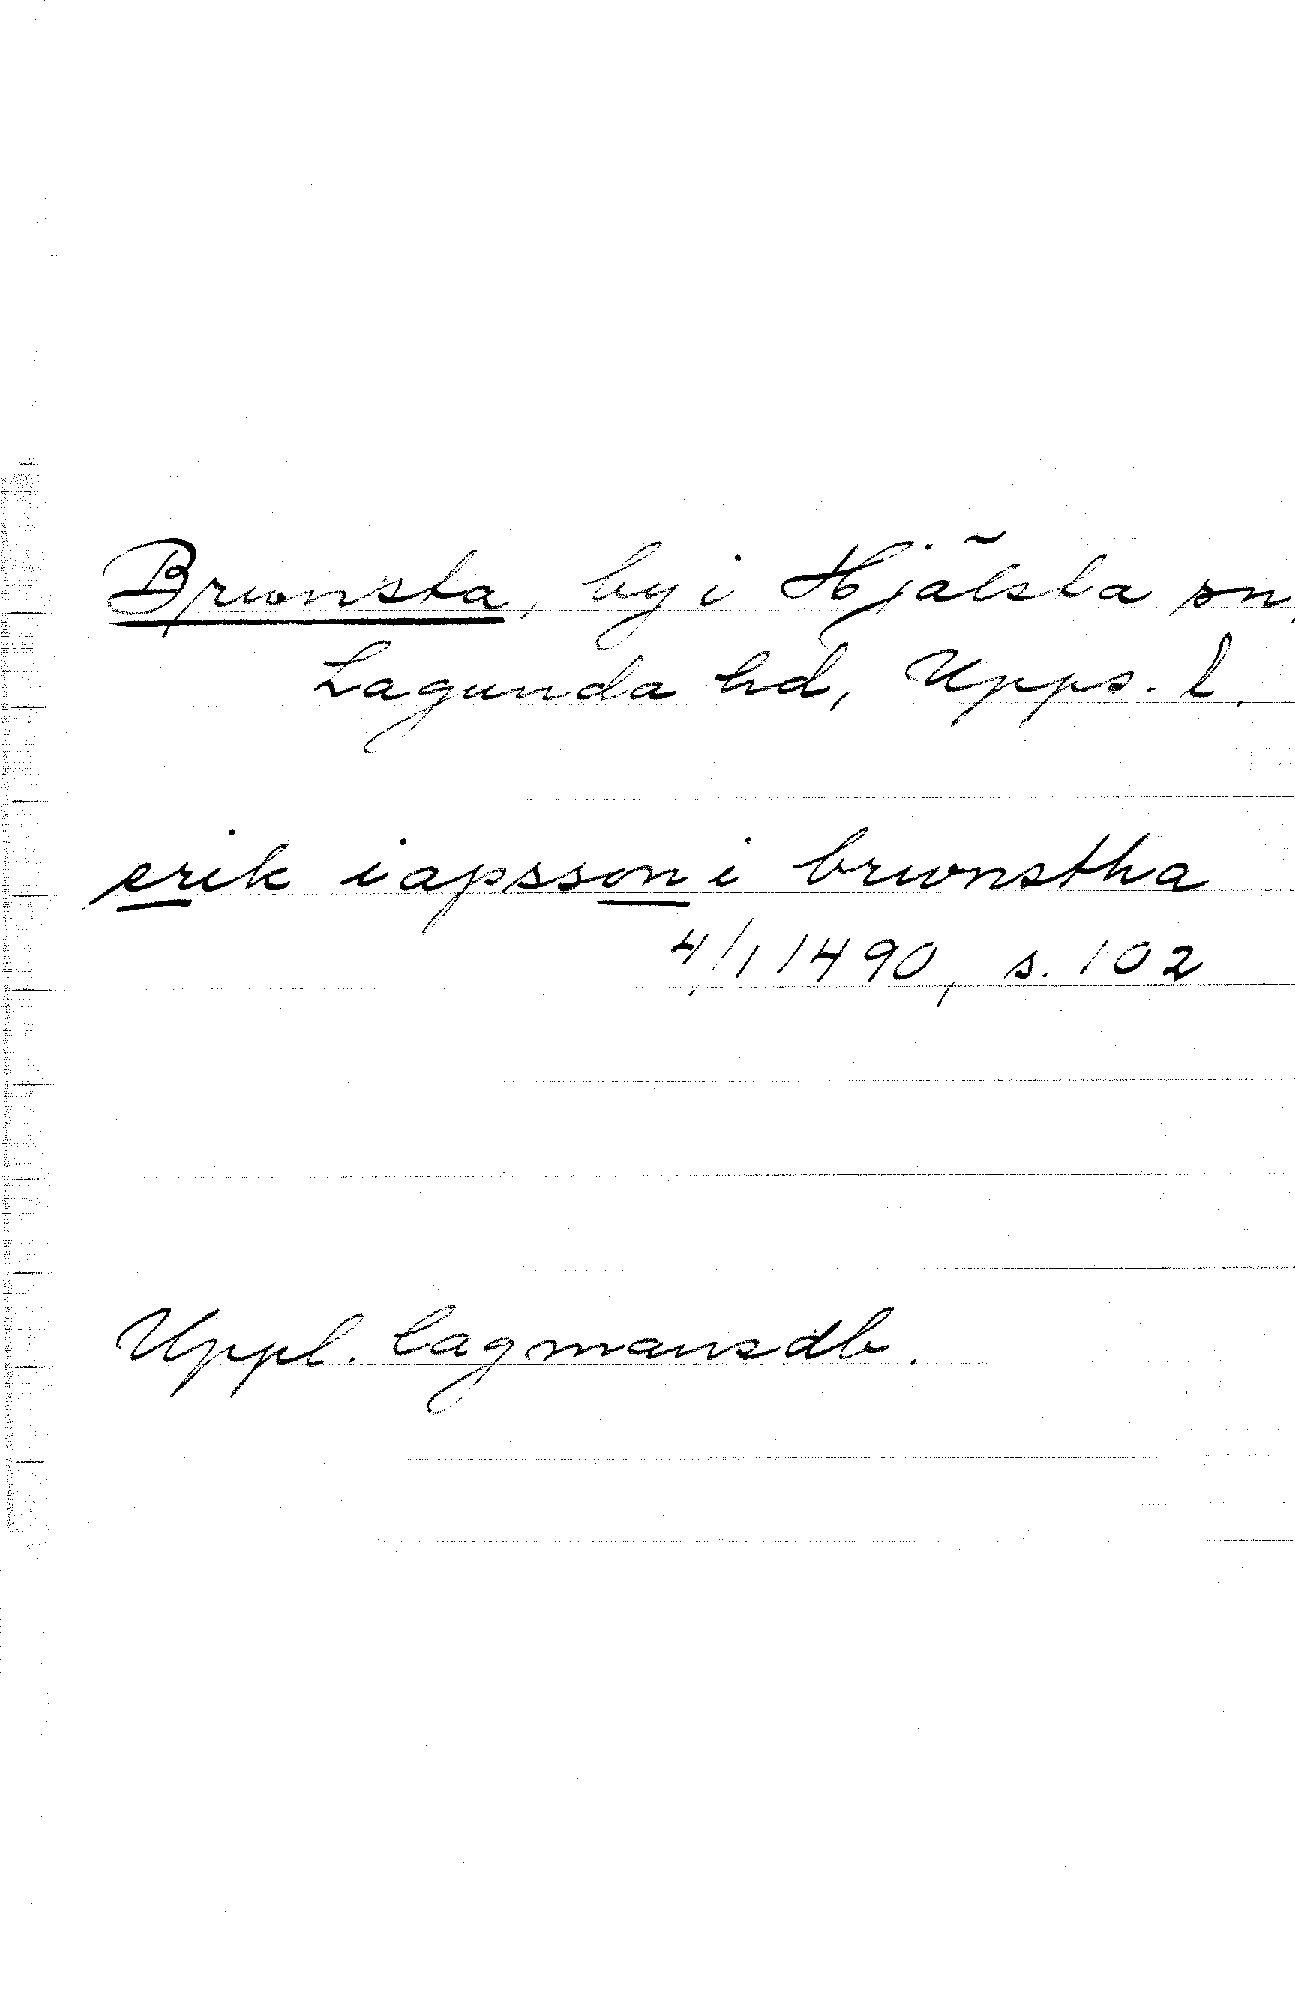 Brwnsta, by i Hjälsta sn,
Lagunda hd, Upps. l.
erik iapsson i brwnstha
4/1 1490, s. 102
Uppl. lagmansdb.